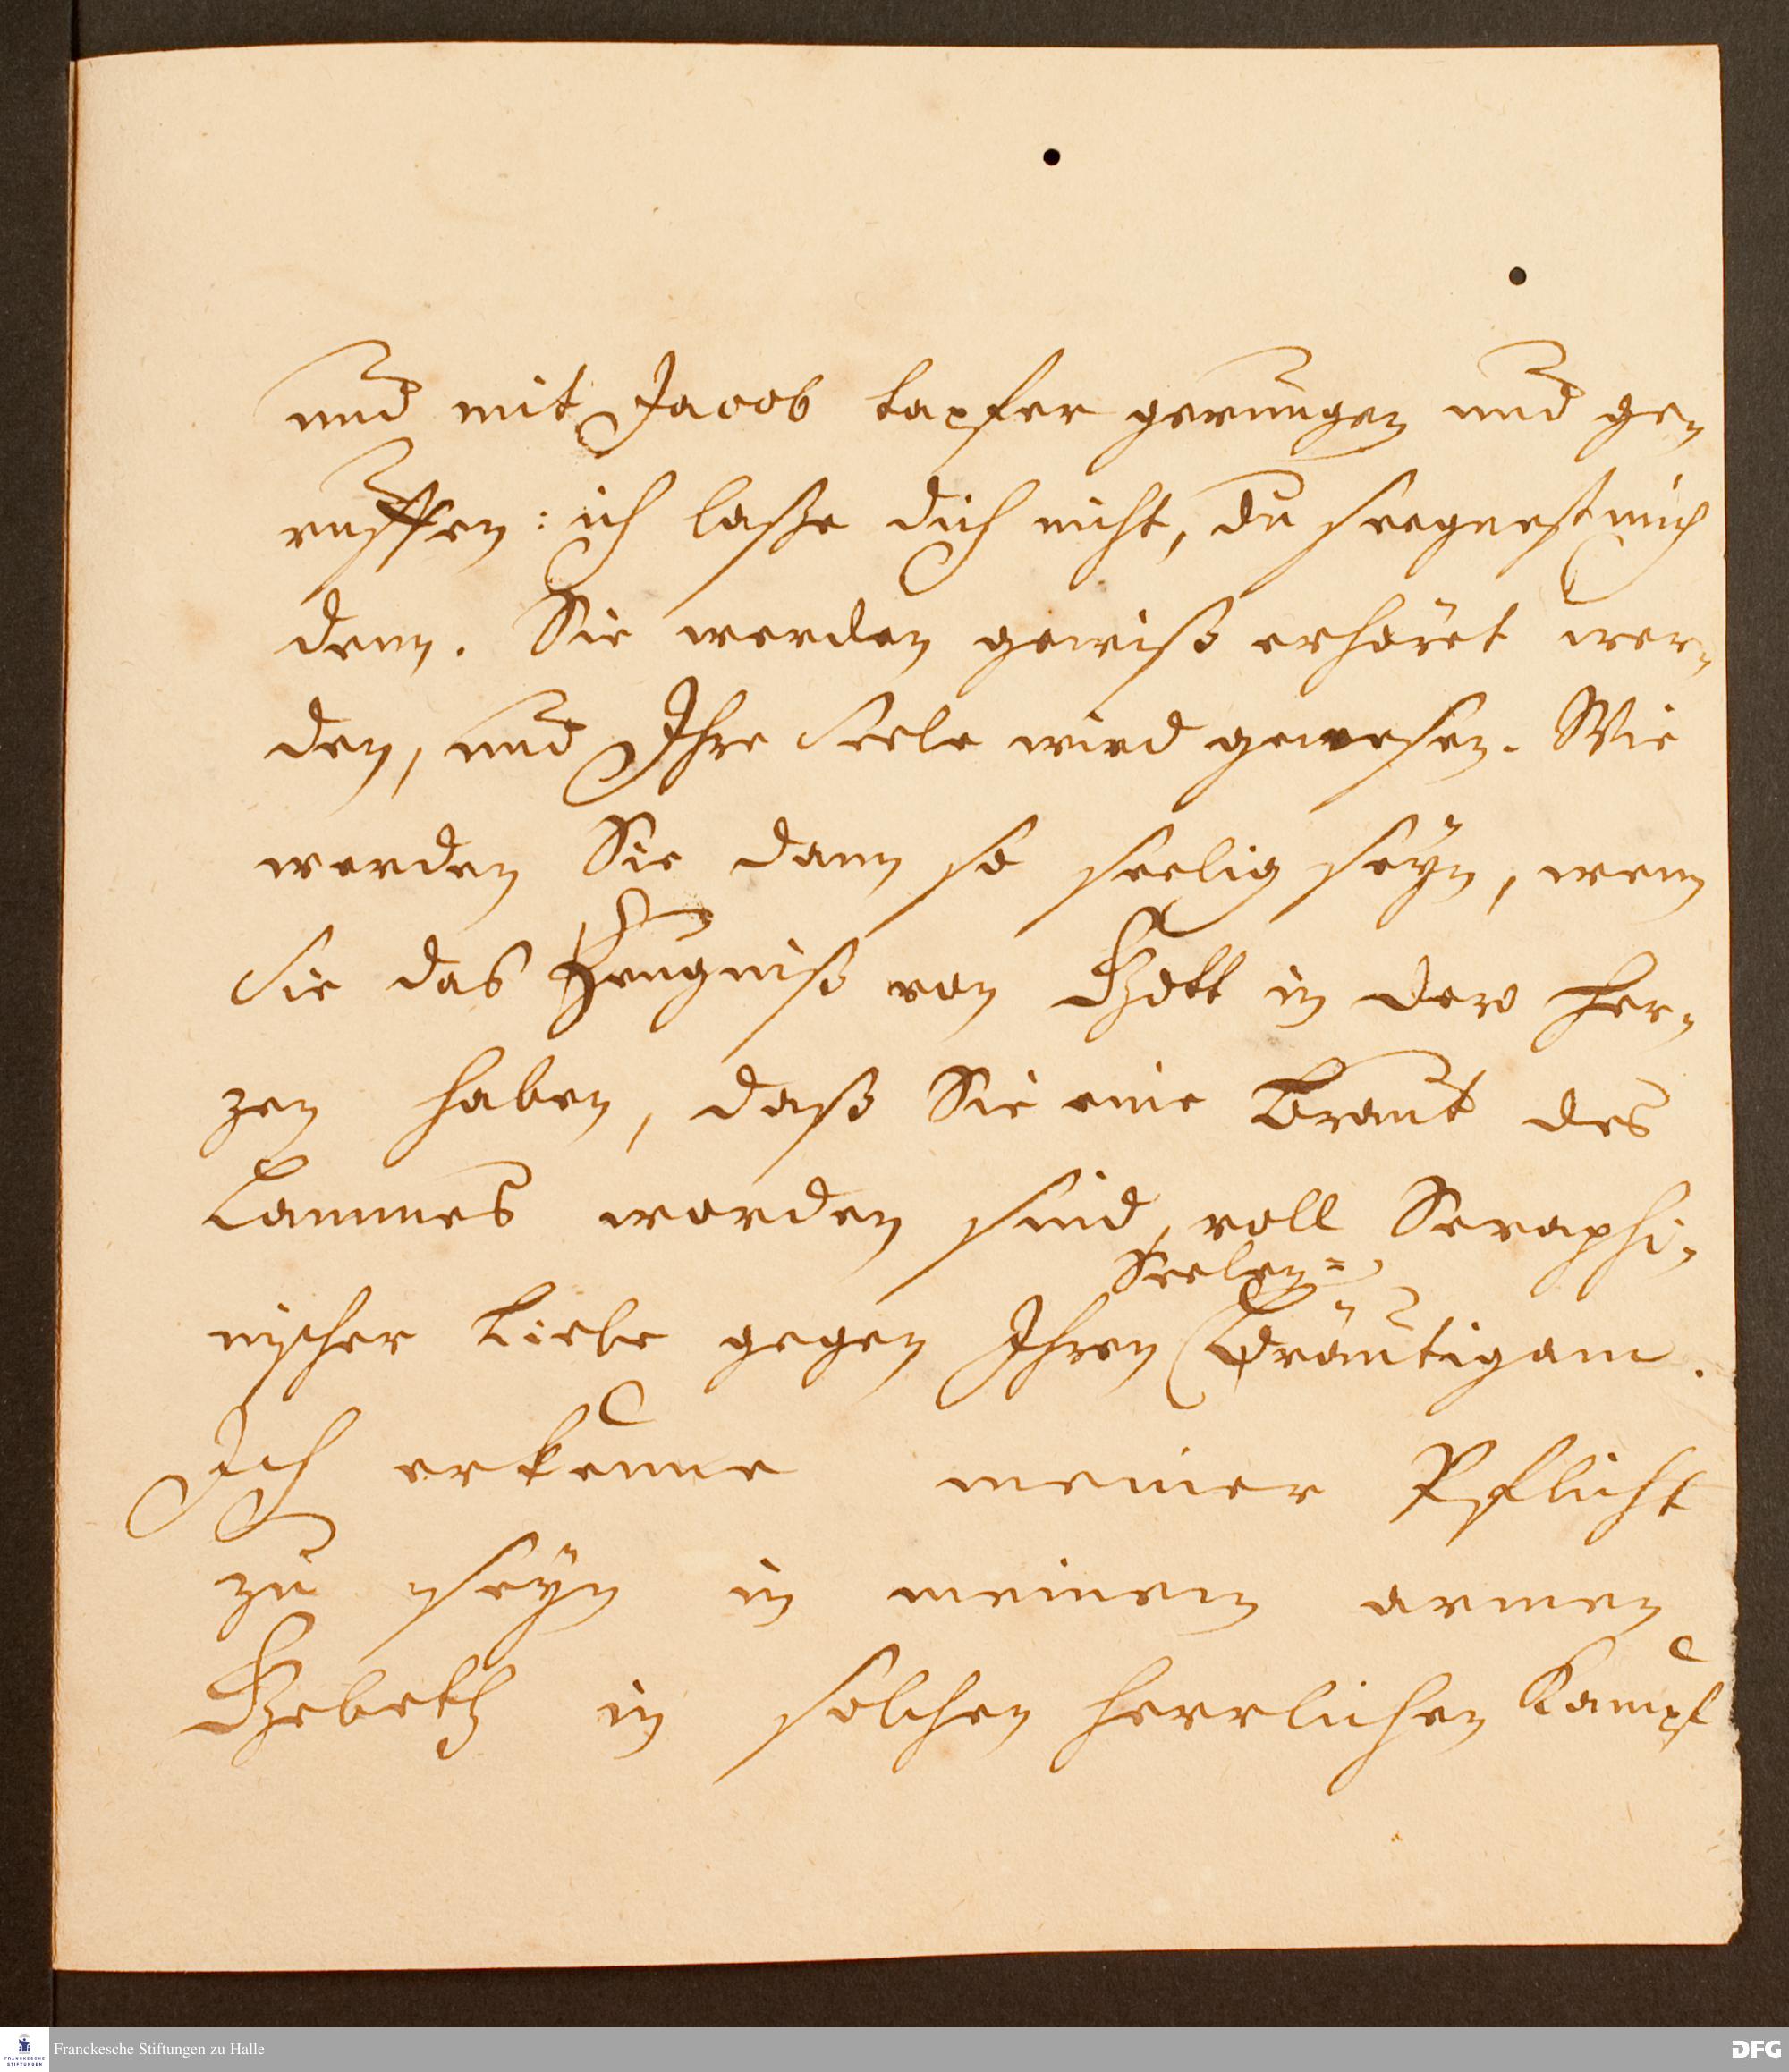 und mit Jacob tapfer gerungen und ge-
ruffen: ich laße dich nicht, du seegnest mich
denn. Sie werden gewiß erhöret wer-
den, und Ihre Seele wird genesen. Wie
werden Sie dann so seelig seÿn, wenn
Sie das Zeugniß von Gott in dero Her-
zen haben, daß Sie eine Braut des
Lammes worden sind, voll Seraphi-
Seelen=
nischer Liebe gegen Ihren Bräutigam.
Ich erkenne meiner Pflicht
zu seÿn in meinem armen
Gebeth in solchen herrlichen Kampf
Franckesche Stiftungen zu Halle
FRANCKESCHE
STIFTUNGEN
DFG